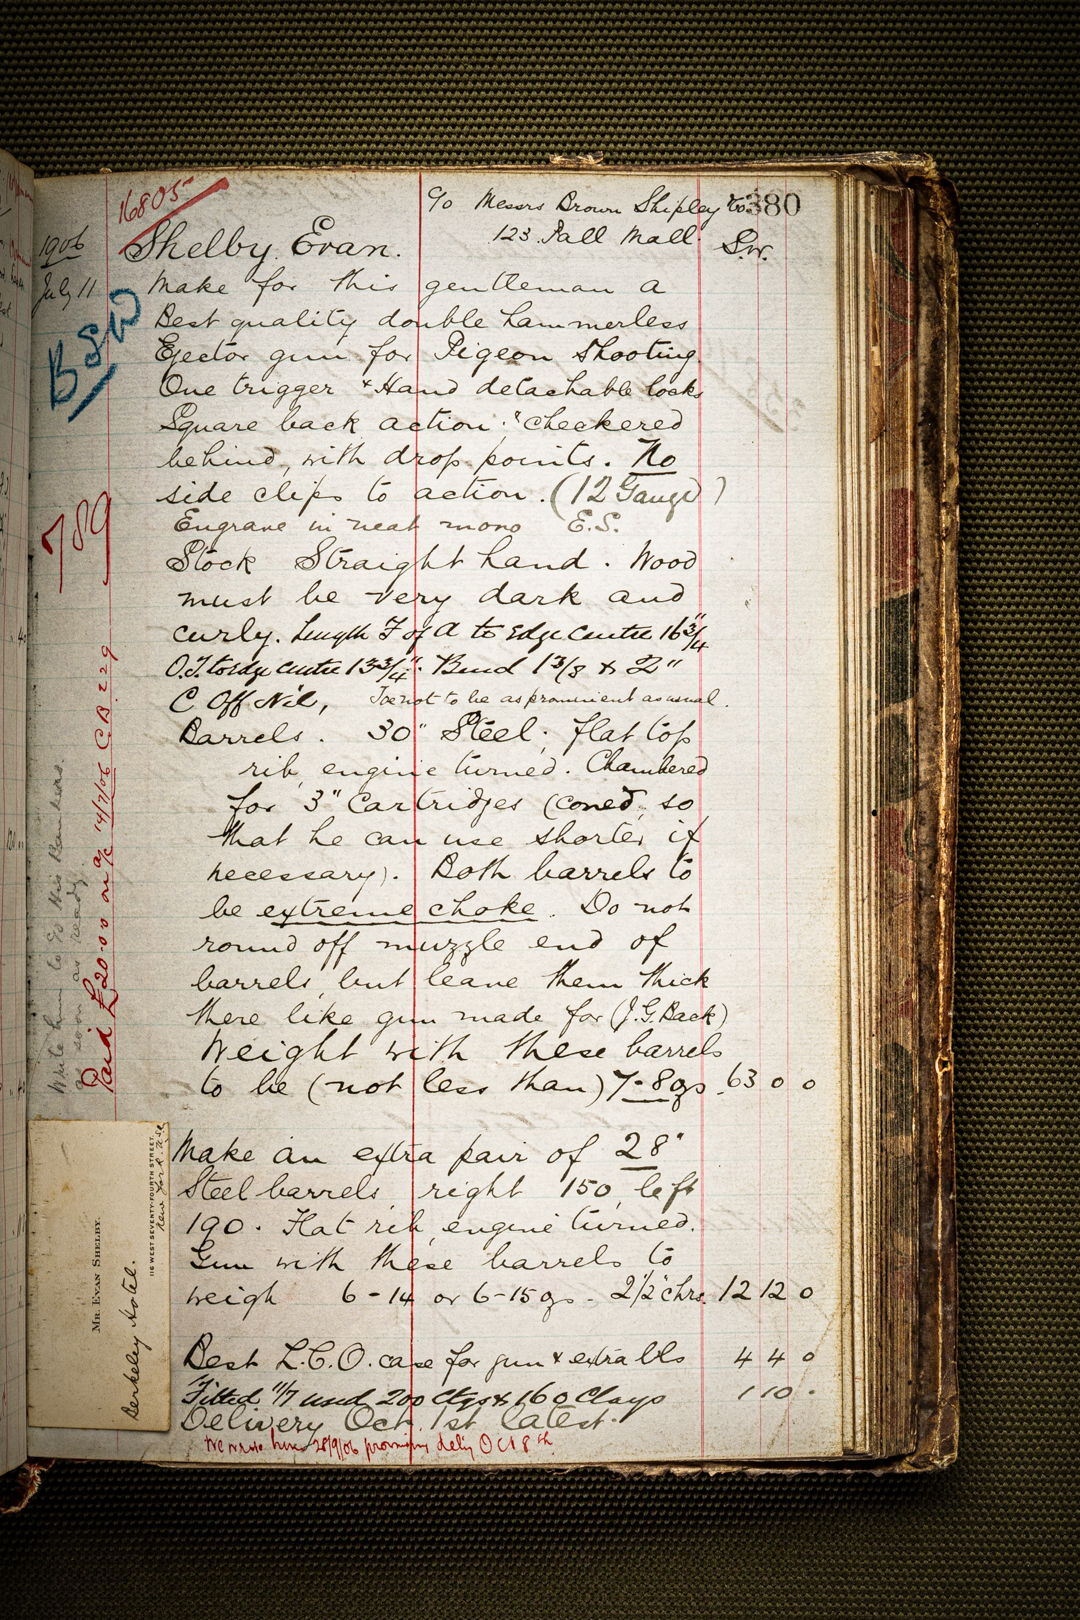 16805
c/o Messrs Brown Shipley & Co 380
123 Pall Mall
S.W.
1906
Shelby Evan.
July 11
Make for this gentleman a
Best quality double hammerless
Ejector gun for Pigeon Shooting
One trigger & Hand detachable locks
Square back action. checkered
behind, with drop points. No
side clips to action. (12 Gauge)
Engrave in neat mono E.S.
Stock Straight hand. Wood
must be very dark and
curly. Length F of A to Edge centre 16 3/4"
O.T. to edge centre 13 3/4". Bend 1 3/8 & 2"
C Off Nil, Toe not to be as prominent as usual.
Barrels. 30" Steel; flat top
rib, engine turned. Chambered
for 3" Cartridges (coned, so
that he can use shorter if
necessary). Both barrels to
be extreme choke. Do not
round off muzzle end of
barrels, but leave them thick
there like gun made for (J.G. Back)
Weight with these barrels
to be (not less than) 7-8ozs. 63 0 0
Make an extra pair of 28"
Steel barrels, right 150, left
190. Flat rib, engine turned.
Gun with these barrels to
weigh 6-14 or 6-15 ozs. 2 1/2" chrs. 12 12 0
Best L.C.O. case for gun & extra bls 4 4 0
Fitted 11/7 used 200 Ctgs & 160 Clays 1 10 .
Delivery Oct. 1st latest.
We wrote him 28/9/06 promising deliy Oct 8th
BSW
789
Write him to c/o His Bankers.
as soon as ready.
Paid £20.0.0 on a/c 14/7/06 C.B. 229
MR. EVAN SHELBY.
Berkeley Hotel.
116 WEST SEVENTY-FOURTH STREET.
New York. U.S.A.